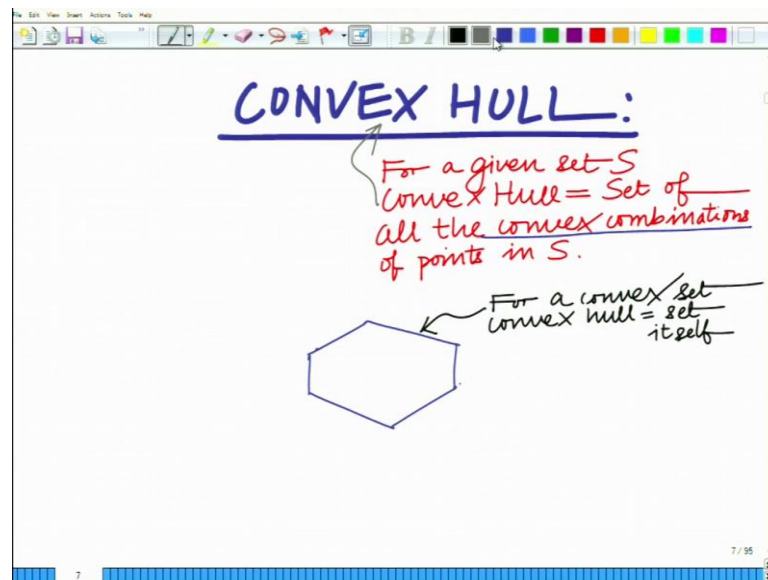 File Edit View Insert Actions Tools Help
B I
CONVEX HULL:
For a given set S
Convex Hull = Set of
all the convex combinations
of points in S.
For a convex set
convex hull = set
itself
7 / 95
7